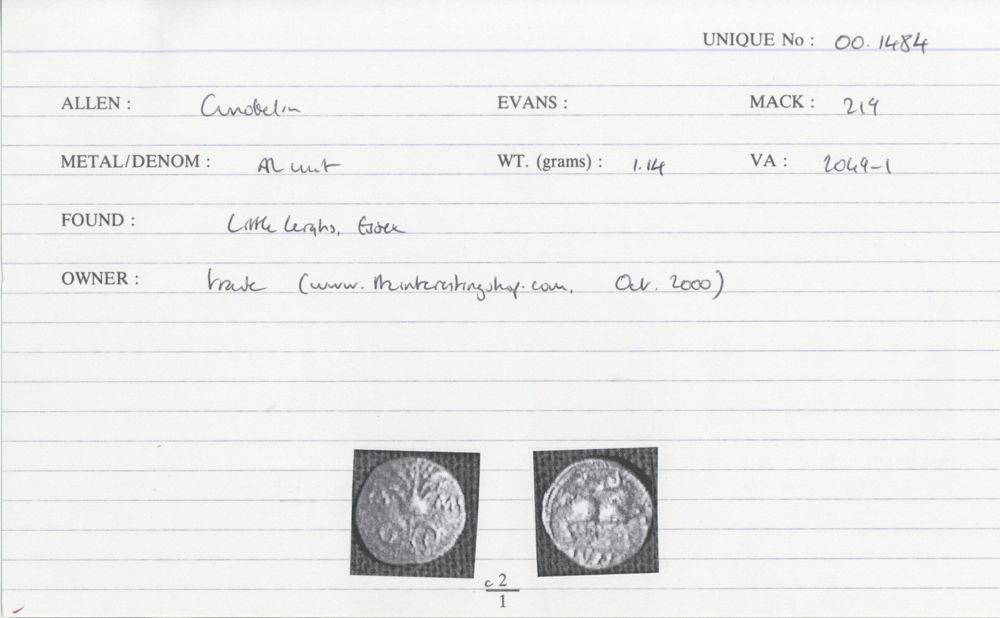 UNIQUE No : 00.1484
ALLEN : Cunobelin EVANS : MACK : 219
METAL/DENOM : AR unit WT. (grams) : 1.14 VA : 2049-1
FOUND : Little Leighs, Essex
OWNER : trade (www.theinterestingshop.com, Oct. 2000)
c 2
1